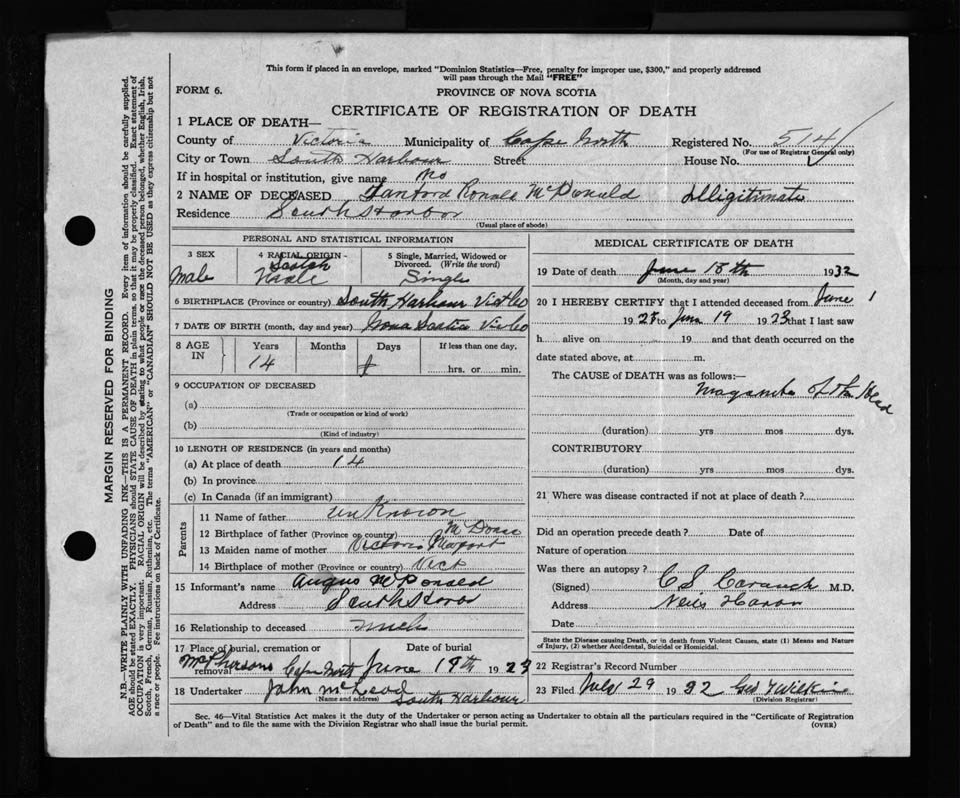 This form if placed in an envelope, marked "Dominion Statistics—Free, penalty for improper use, $300," and properly addressed
will pass through the Mail "FREE"
FORM 6.
PROVINCE OF NOVA SCOTIA
CERTIFICATE OF REGISTRATION OF DEATH
1 PLACE OF DEATH—
County of Victoria Municipality of Cape North Registered No. 514
(For use of Registrar General only)
City or Town South Harbour Street House No.
If in hospital or institution, give name no
2 NAME OF DECEASED Ronald McDonald Illigitimate
Residence South Harbor
(Usual place of abode)
PERSONAL AND STATISTICAL INFORMATION
3 SEX
Male
4 RACIAL ORIGIN—
Scotch
5 Single, Married, Widowed or
Divorced. (Write the word)
Single
6 BIRTHPLACE (Province or country) South Harbour Vict Co
7 DATE OF BIRTH (month, day and year) Nova Scotia Vic Co
8 AGE
IN
Years
Months
Days
If less than one day.
14
hrs. or min.
9 OCCUPATION OF DECEASED
(a)
(Trade or occupation or kind of work)
(b)
(Kind of industry)
10 LENGTH OF RESIDENCE (in years and months)
(a) At place of death 14
(b) In province
(c) In Canada (if an immigrant)
Parents
11 Name of father unknown
12 Birthplace of father (Province or country)
13 Maiden name of mother Victoria
14 Birthplace of mother (Province or country) Vict
15 Informant's name Angus McDonald
Address South Harbor
16 Relationship to deceased Uncle
17 Place of burial, cremation or
removal
Date of burial
McPhersons Cape North June 19th 1923
18 Undertaker John McLeod
(Name and address) South Harbour
MEDICAL CERTIFICATE OF DEATH
19 Date of death June 18th 1932
(Month, day and year)
20 I HEREBY CERTIFY that I attended deceased from June 1
19 to June 19 1923 that I last saw
h alive on 19 and that death occurred on the
date stated above, at m.
The CAUSE of DEATH was as follows:—
of the Head
(duration) yrs mos dys.
CONTRIBUTORY
(duration) yrs mos dys.
21 Where was disease contracted if not at place of death?
Did an operation precede death? Date of
Nature of operation
Was there an autopsy?
(Signed) M.D.
Address Neils Harbor
Date
State the Disease causing Death, or in death from Violent Causes, state (1) Means and Nature
of Injury, (2) whether Accidental, Suicidal or Homicidal.
22 Registrar's Record Number
23 Filed July 29 1932 Geo Wilkie
(Division Registrar)
Sec. 46—Vital Statistics Act makes it the duty of the Undertaker or person acting as Undertaker to obtain all the particulars required in the "Certificate of Registration
of Death" and to file the same with the Division Registrar who shall issue the burial permit.
(OVER)
MARGIN RESERVED FOR BINDING
N.B.—WRITE PLAINLY WITH UNFADING INK—THIS IS A PERMANENT RECORD. Every item of information should be carefully supplied.
AGE should be stated EXACTLY. PHYSICIANS should STATE CAUSE OF DEATH in plain terms, so that it may be properly classified. Exact statement of
OCCUPATION is very important. RACIAL ORIGIN will be described by stating to what people or race the deceased person belonged, whether English, Irish,
Scotch, French, German, Russian, Ruthenian, etc. The terms "AMERICAN" or "CANADIAN" SHOULD NOT BE USED as they express citizenship but not
a race or people. Fee instructions on back of Certificate.